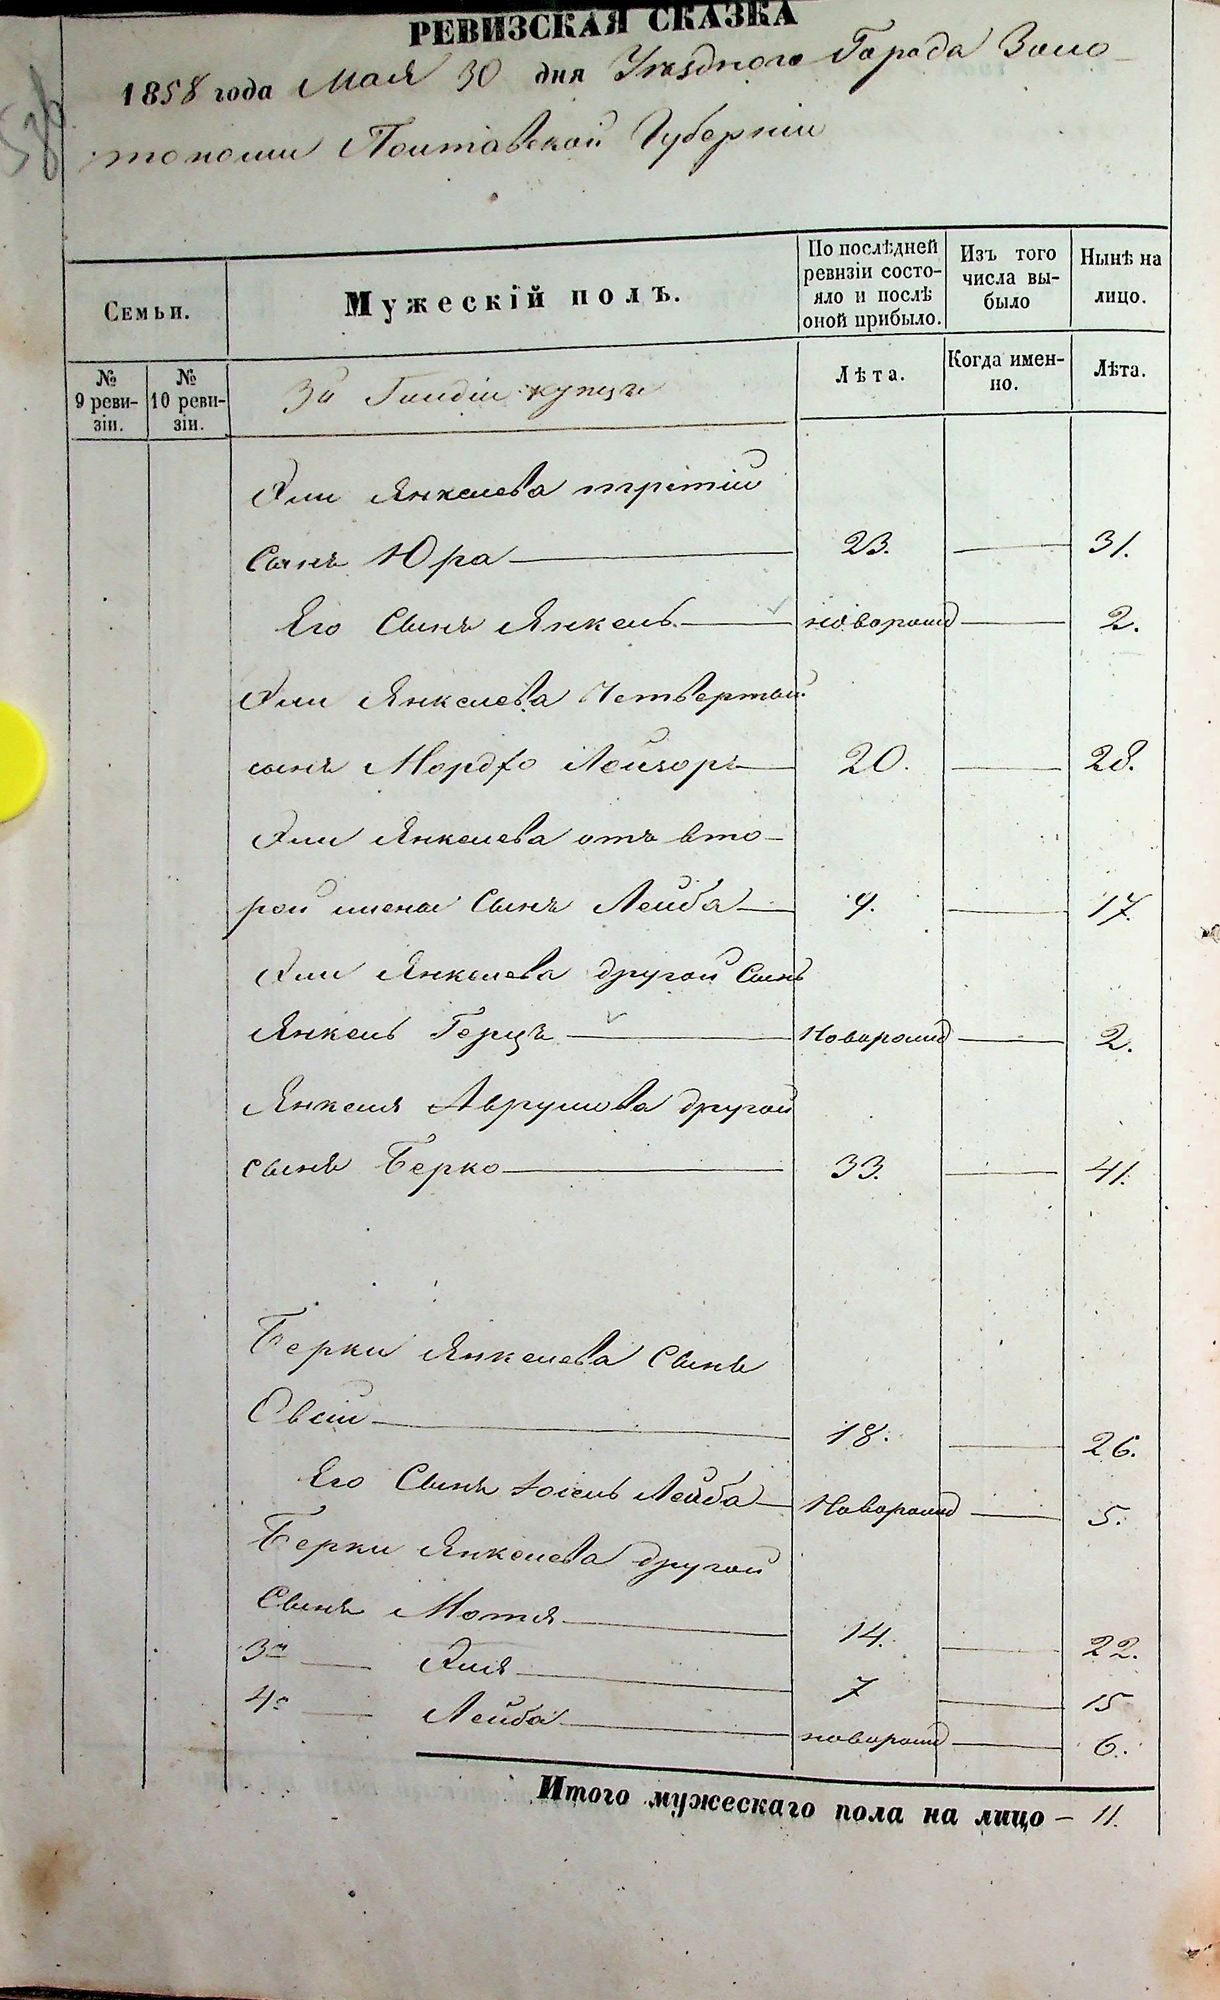 РЕВИЗСКАЯ СКАЗКА
1858 года Мая 30 дня Уѣзднаго Города Золо-
тоноши Полтавской Губерніи
Семьи.
Мужескій полъ.
По послѣдней ревизіи состо-
яло и послѣ оной прибыло.
Изъ того числа вы-
было
Нынѣ на лицо.
№ 9 реви-
зіи.
№ 10 реви-
зіи.
3й Гильдіи купцъ
Лѣта.
Когда имен-
но.
Лѣта.
Эли Янкелева третій
Сынъ Юра 23. 31.
Его Сынъ Янкель новорожд 2.
Эли Янкелева Четвертый
сынъ Мордхо Лейзоръ 20. 28.
Эли Янкелева отъ вто-
рой жены Сынъ Лейба 9. 17.
Эли Янкелева другой Сынъ
Янкель Герцъ Новорожд 2.
Янкеля Аврумова другой
сынъ Берко 33. 41.
Берки Янкелева Сынъ
Овсій 18. 26.
Его Сынъ Іосель Лейба Новорожд 5.
Берки Янкелева другой
Сынъ Мотя 14. 22.
3й Эля 7 15
4й Лейба новорожд 6.
Итого мужескаго пола на лицо - 11.